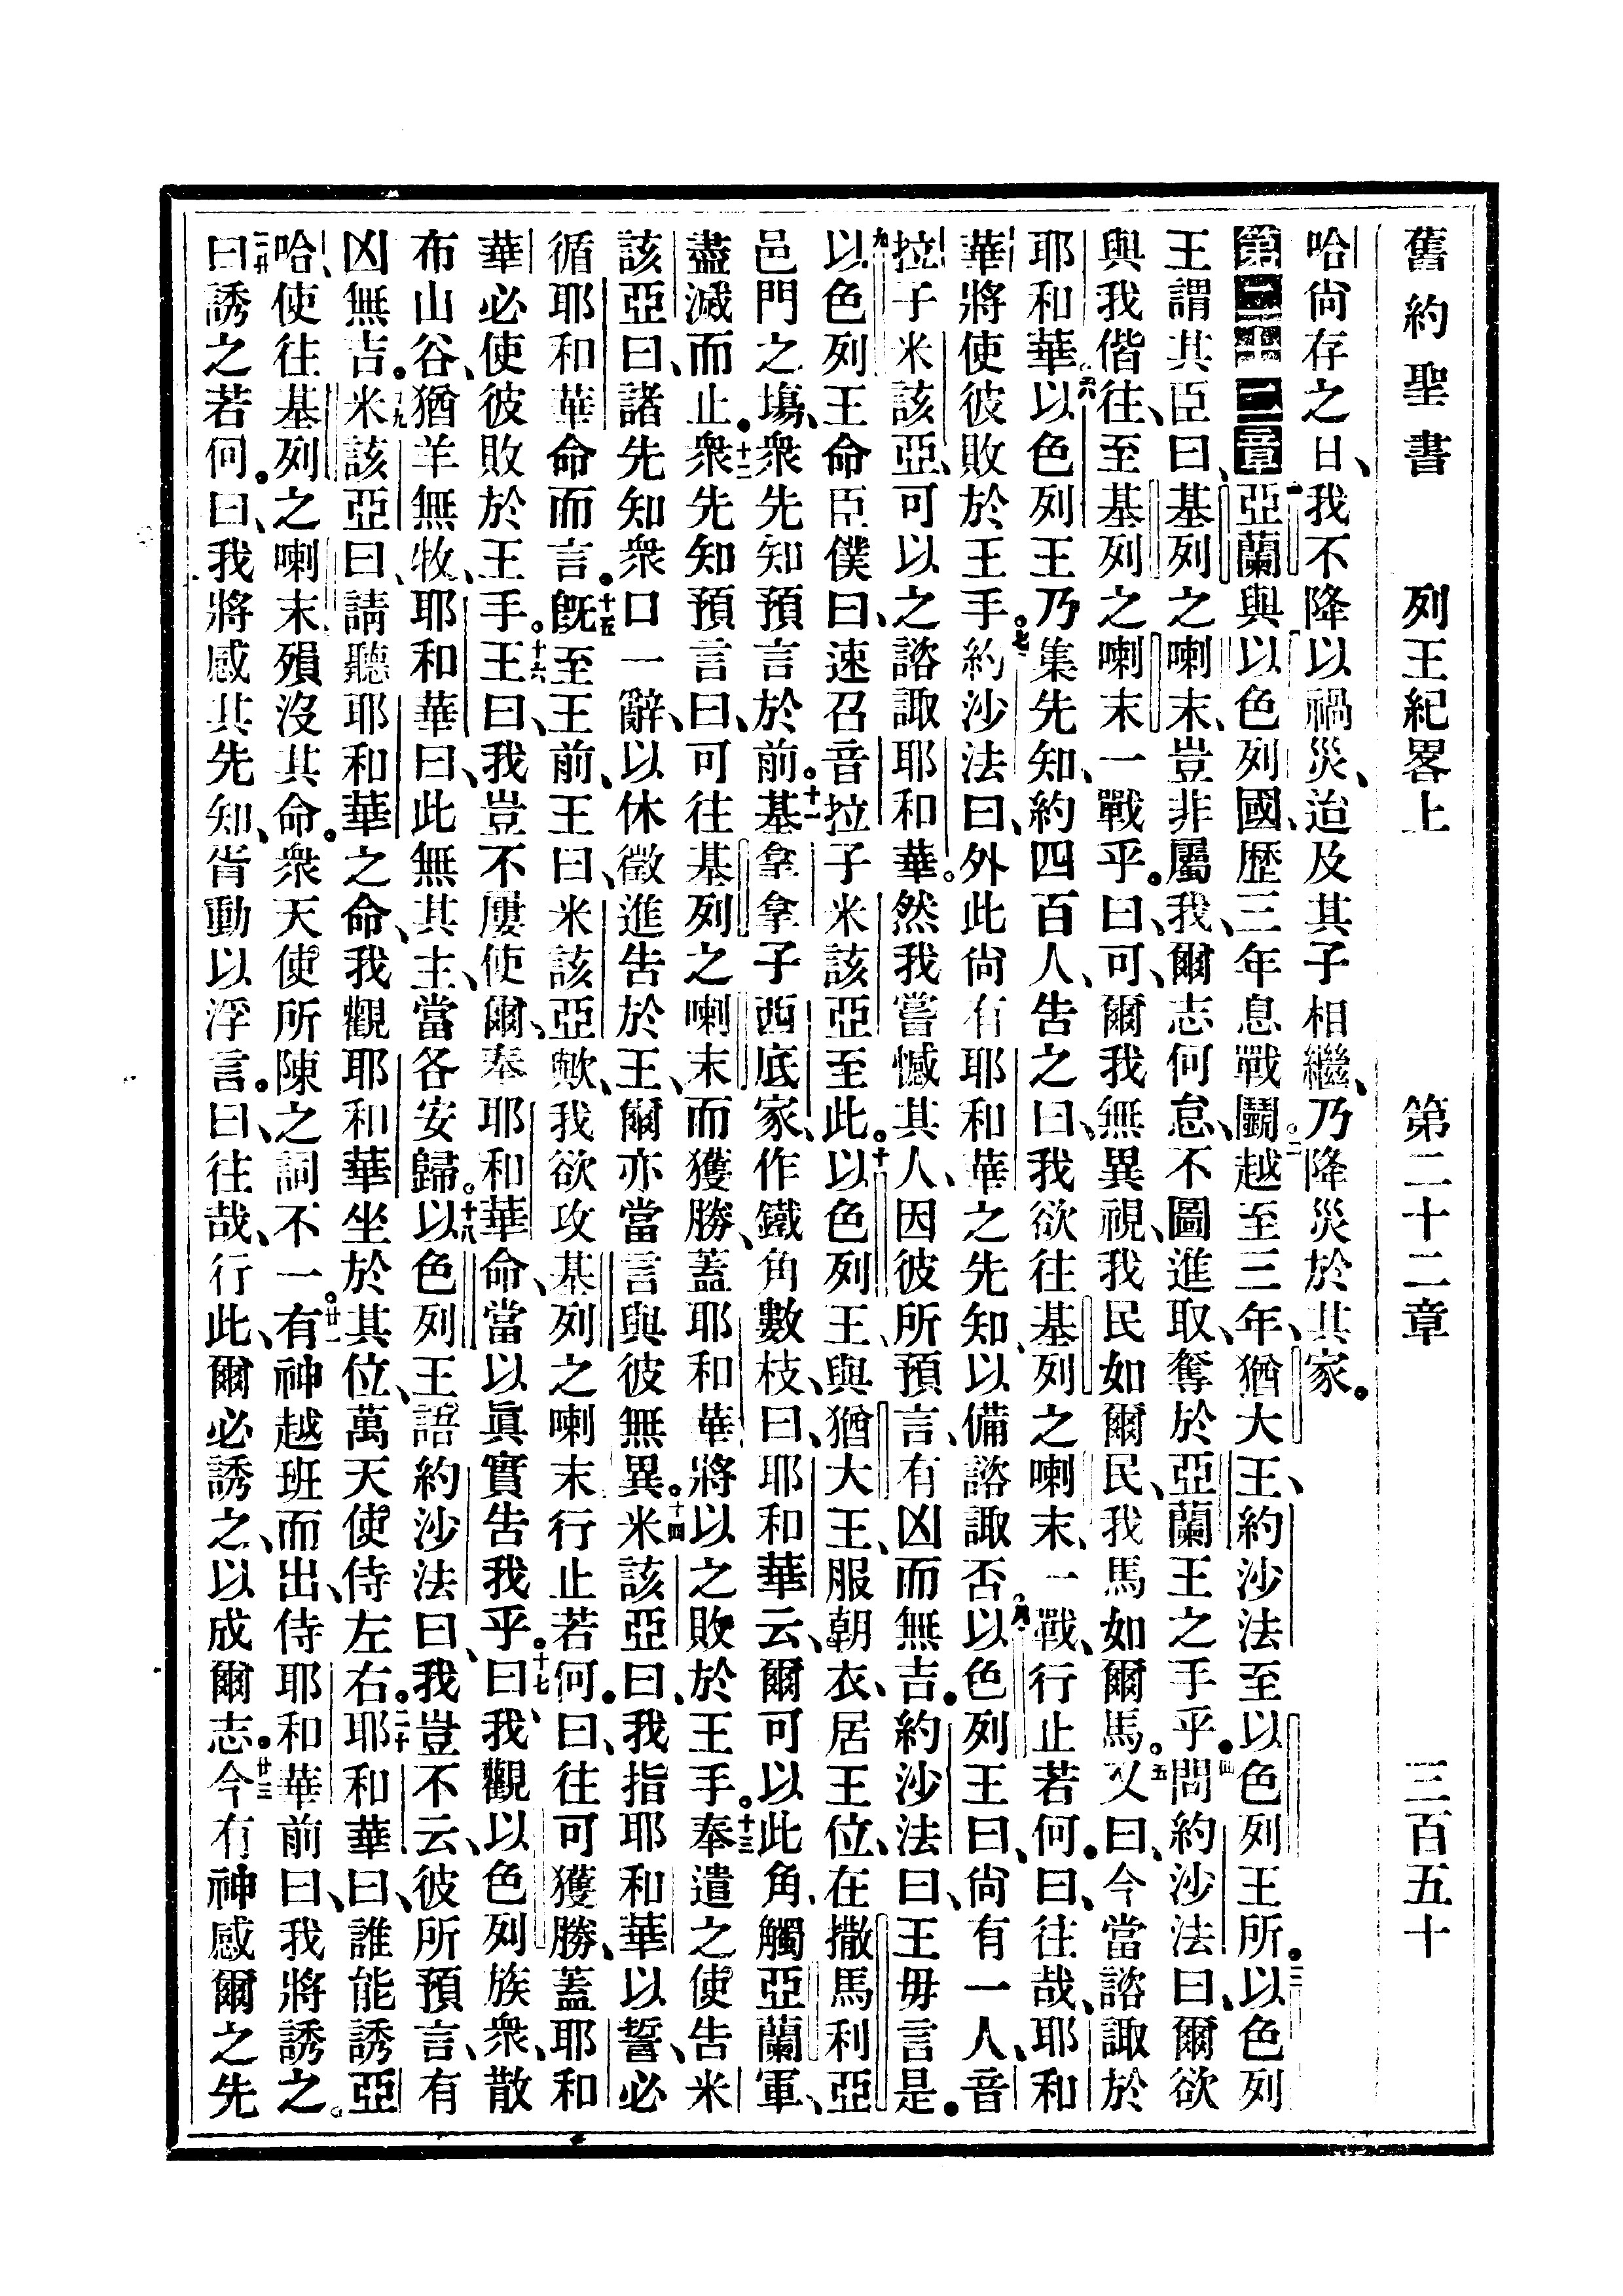 舊約聖書 列王紀畧上 第二十二章 三百五十
哈尙存之日、我不降以禍災、迨及其子相繼、乃降災於其家。
第二十二章 一亞蘭與以色列國、歷三年息戰鬬。二越至三年、猶大王、約沙法至以色列王所。三以色列
王謂其臣曰、基列之喇末、豈非屬我、爾志何怠、不圖進取、奪於亞蘭王之手乎。四問約沙法曰、爾欲
與我偕往、至基列之喇末一戰乎。曰、可、爾我無異視、我民如爾民、我馬如爾馬。五又曰、今當諮諏於
耶和華。六以色列王乃集先知、約四百人、告之曰、我欲往基列之喇末、一戰、行止若何。曰、往哉、耶和
華將使彼敗於王手。七約沙法曰、外此尙有耶和華之先知、以備諮諏否。八以色列王曰、尙有一人、音
拉子米該亞、可以之諮諏耶和華。然我嘗憾其人、因彼所預言、有凶而無吉。約沙法曰、王毋言是。
九以色列王命臣僕曰、速召音拉子米該亞至此。十以色列王、與猶大王、服朝衣、居王位、在撒馬利亞
邑門之塲、衆先知預言於前。十一基拿拿子西底家、作鐵角數枝、曰、耶和華云、爾可以此角、觸亞蘭軍、
盡滅而止。十二衆先知預言曰、可往基列之喇末而獲勝、蓋耶和華將以之敗於王手。十三奉遣之使、告米
該亞曰、諸先知衆口一辭、以休徵進告於王、爾亦當言與彼無異。十四米該亞曰、我指耶和華以誓、必
循耶和華命而言。十五旣至王前、王曰、米該亞歟、我欲攻基列之喇末行止若何。曰、往可獲勝、蓋耶和
華必使彼敗於王手。十六王曰、我豈不屢使爾、奉耶和華命、當以眞實告我乎。十七曰、我觀以色列族衆、散
布山谷、猶羊無牧、耶和華曰、此無其主、當各安歸。十八以色列王語約沙法曰、我豈不云、彼所預言、有
凶無吉。十九米該亞曰、請聽耶和華之命、我觀耶和華坐於其位、萬天使侍左右。二十耶和華曰、誰能誘亞
哈、使往基列之喇末、殞沒其命。衆天使所陳之詞不一。廿一有神越班而出、侍耶和華前曰、我將誘之。
二廿曰、誘之若何。曰、我將感其先知、胥動以浮言。曰、往哉、行此、爾必誘之、以成爾志。廿三今有神感爾之先